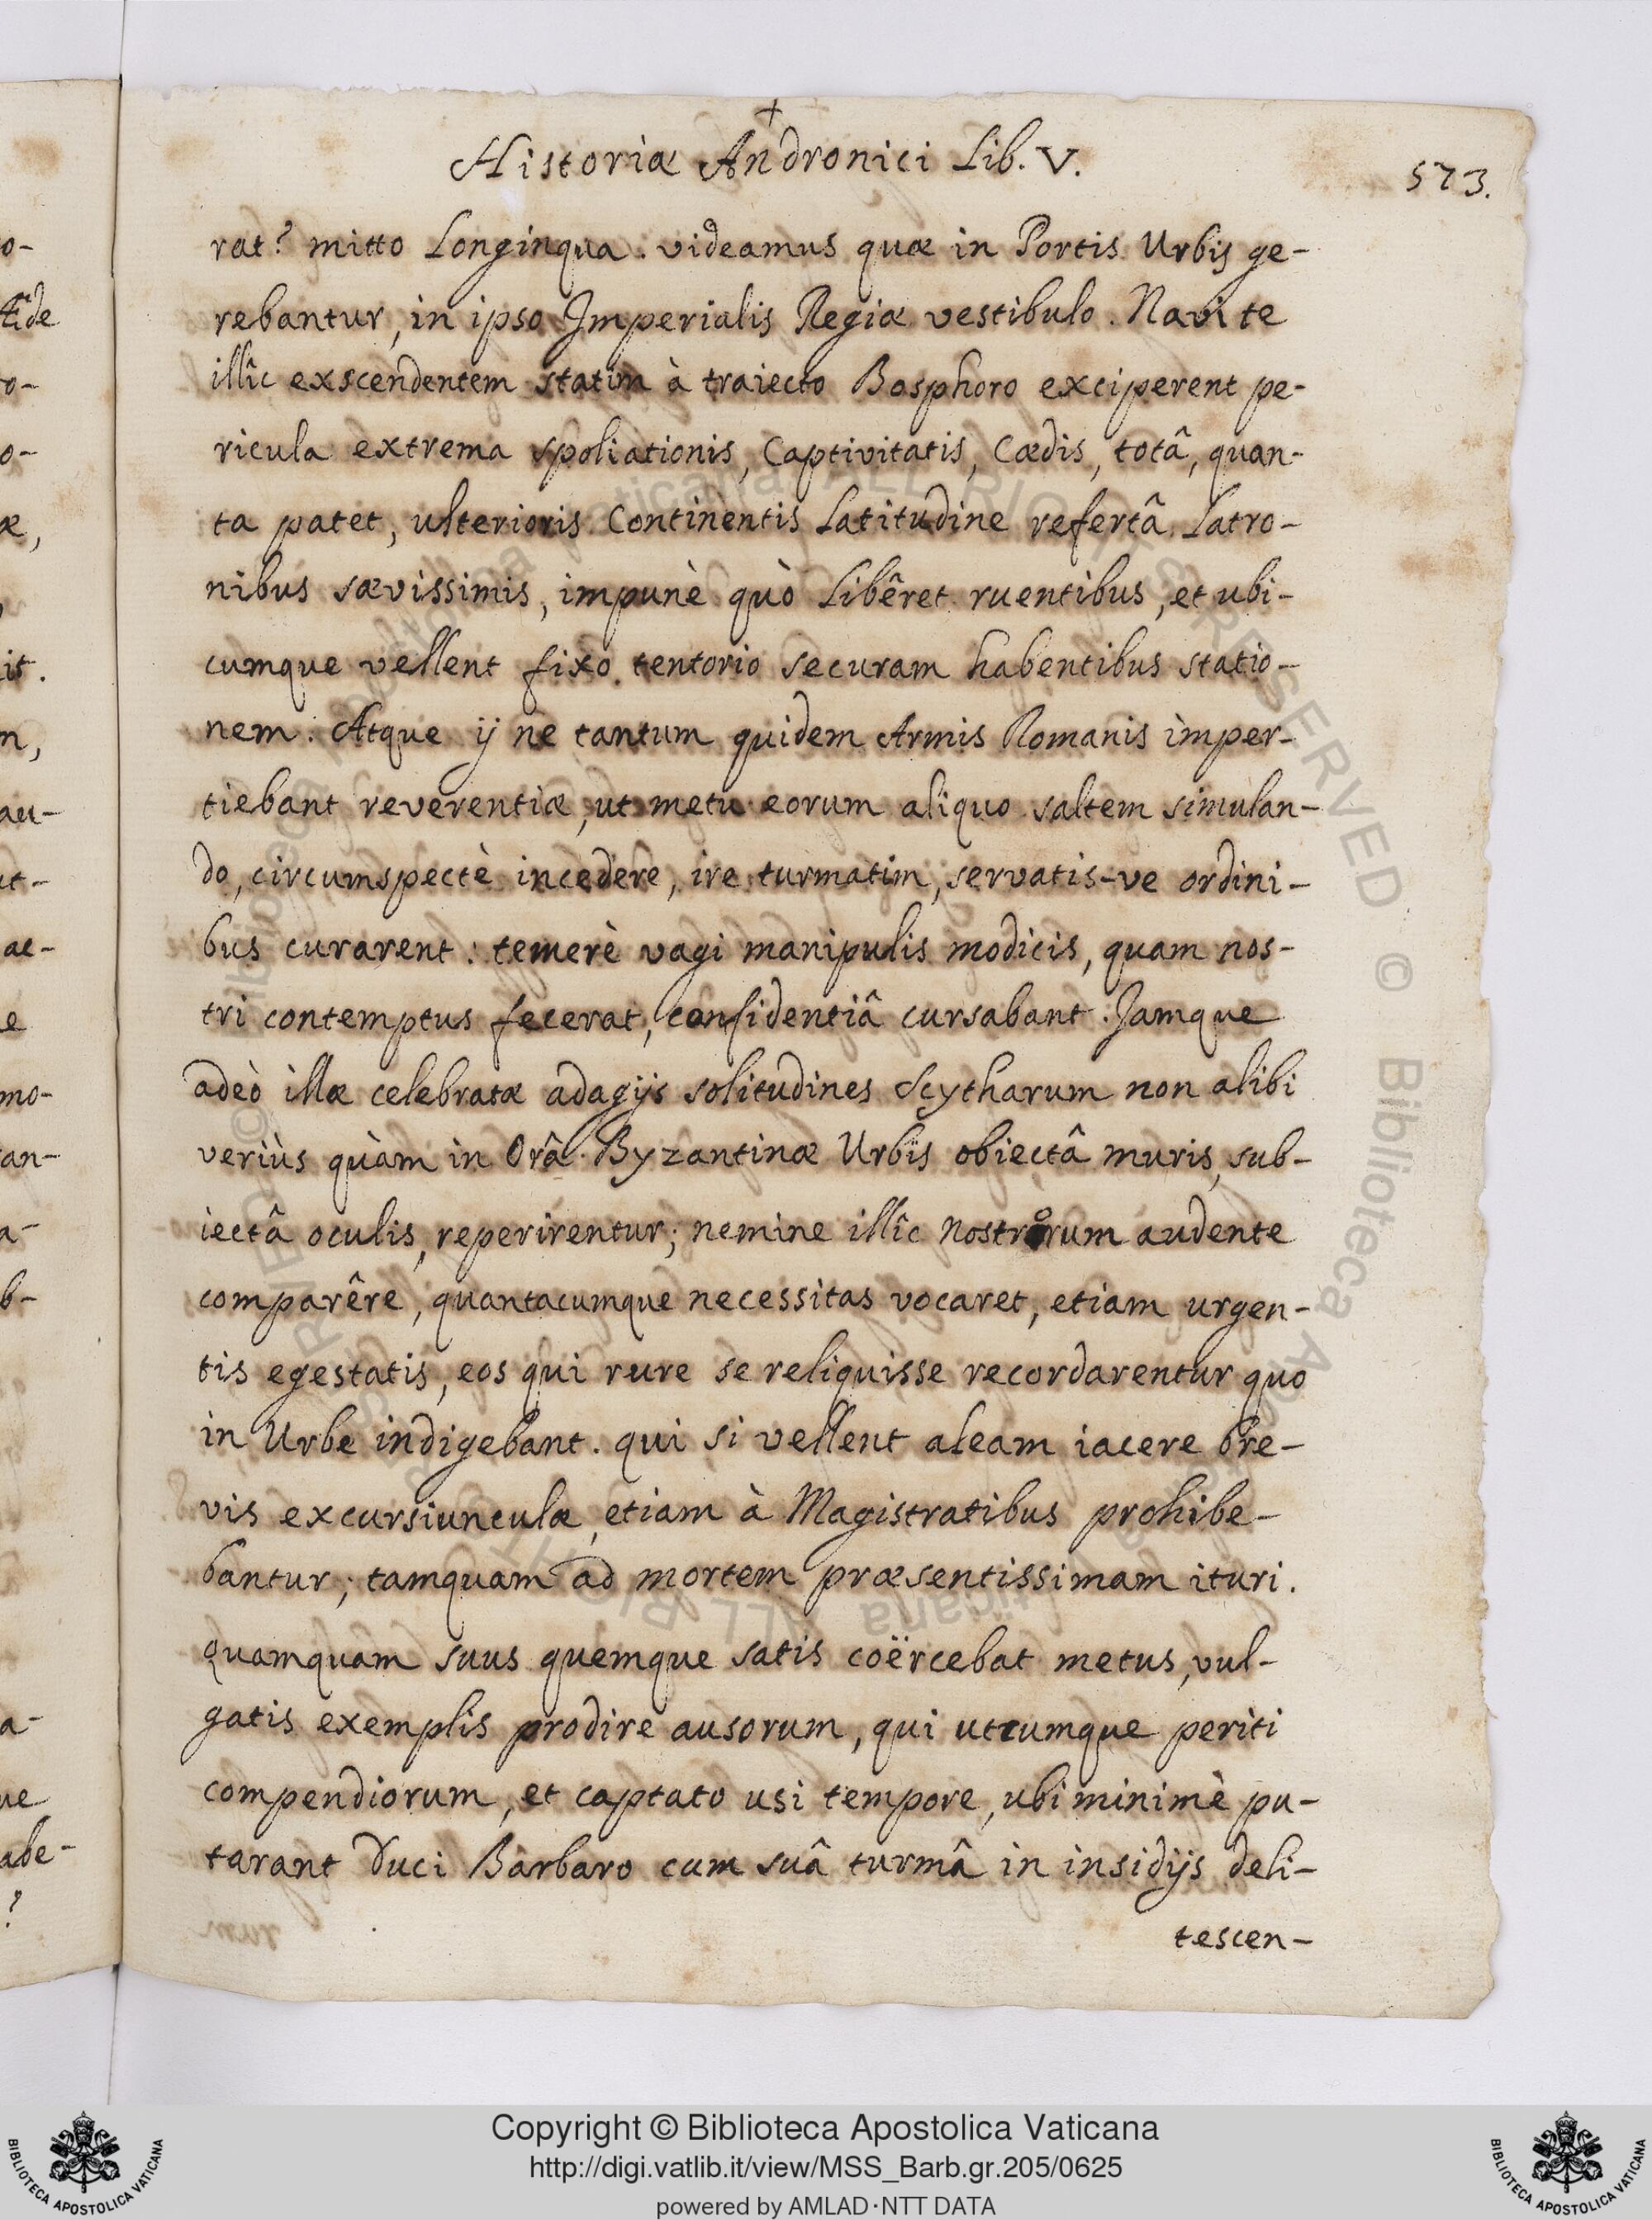 +
Historiæ Andronici Lib. V.
573.
rat? mitto Longinqua. videamus quæ in Portis Urbis ge-
rebantur, in ipso Imperialis Regiæ vestibulo. Navi te
illîc exscendentem statim à traiecto Bosphoro exciperent pe-
ricula extrema spoliationis, Captivitatis, Cædis, totâ, quan-
ta patet, ulterioris Continentis Latitudine refertâ Latro-
nibus sævissimis, impunè quò Libêret ruentibus, et ubi-
cumque vellent fixo tentorio securam habentibus statio-
nem. Atque ij ne tantum quidem Armis Romanis imper-
tiebant reverentiæ, ut metu eorum aliquo saltem simulan-
do, circumspectè incedere, ire turmatim, servatis-ve ordini-
bus curarent: temerè vagi manipulis modicis, quam nos-
tri contemptus fecerat, confidentiâ cursabant. Jamque
adeò illæ celebratæ adagijs solitudines Scytharum non alibi
veriùs quàm in Orâ Byzantinæ Urbis obiectâ muris, sub-
iectâ oculis, reperirentur; nemine illîc nostrorum audente
comparêre, quantacumque necessitas vocaret, etiam urgen-
tis egestatis, eos qui rure se reliquisse recordarentur quo
in Urbe indigebant. qui si vellent aleam iacere bre-
vis excursiunculæ, etiam à Magistratibus prohibe-
bantur; tamquam ad mortem præsentissimam ituri.
quamquam suus quemque satis coërcebat metus, vul-
gatis exemplis prodire ausorum, qui utcumque periti
compendiorum, et captato usi tempore, ubi minimè pu-
tarant Duci Barbaro cum suâ turmâ in insidijs deli-
tescen-
Copyright © Biblioteca Apostolica Vaticana
http://digi.vatlib.it/view/MSS_Barb.gr.205/0625
powered by AMLAD·NTT DATA
BIBLIOTECA APOSTOLICA VATICANA
BIBLIOTECA APOSTOLICA VATICANA